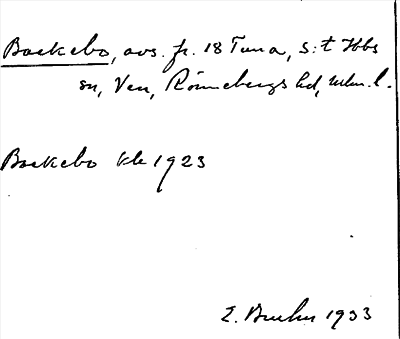 Backebo, avs. fr. 18 Tuna, S:t Ibbs
sn, Ven, Rönnebergs hd, Mlm. l.
Backebo kk 1923
E. Bruhn 1933